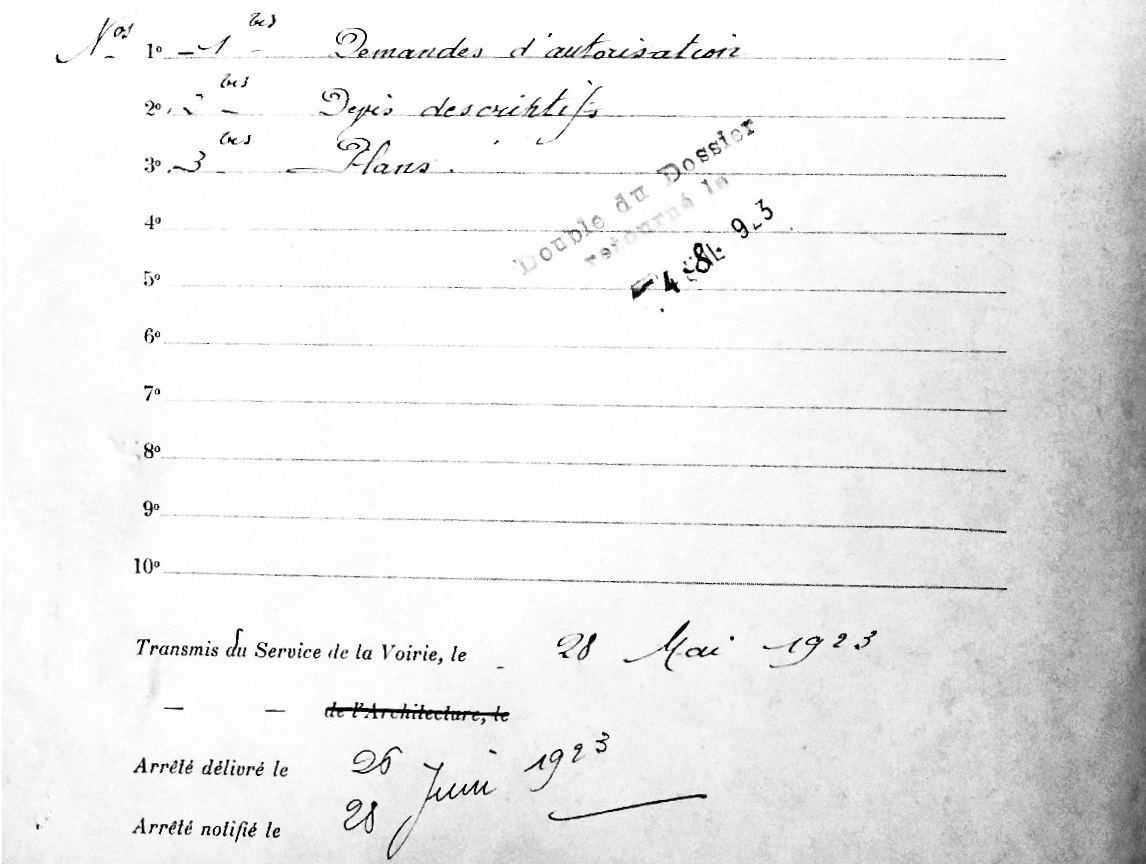 Nos 1º - 1 bis - Demandes d'autorisation
2º. 2 bis - Devis descriptifs
3º. 3 bis - Plans.
Double du Dossier
retourné le
4º
5º
6º
7º
8º
9º
10º
Transmis du Service de la Voirie, le 28 Mai 1923
— — de l'Architecture, le
Arrêté délivré le 26 Juin 1923
Arrêté notifié le 28